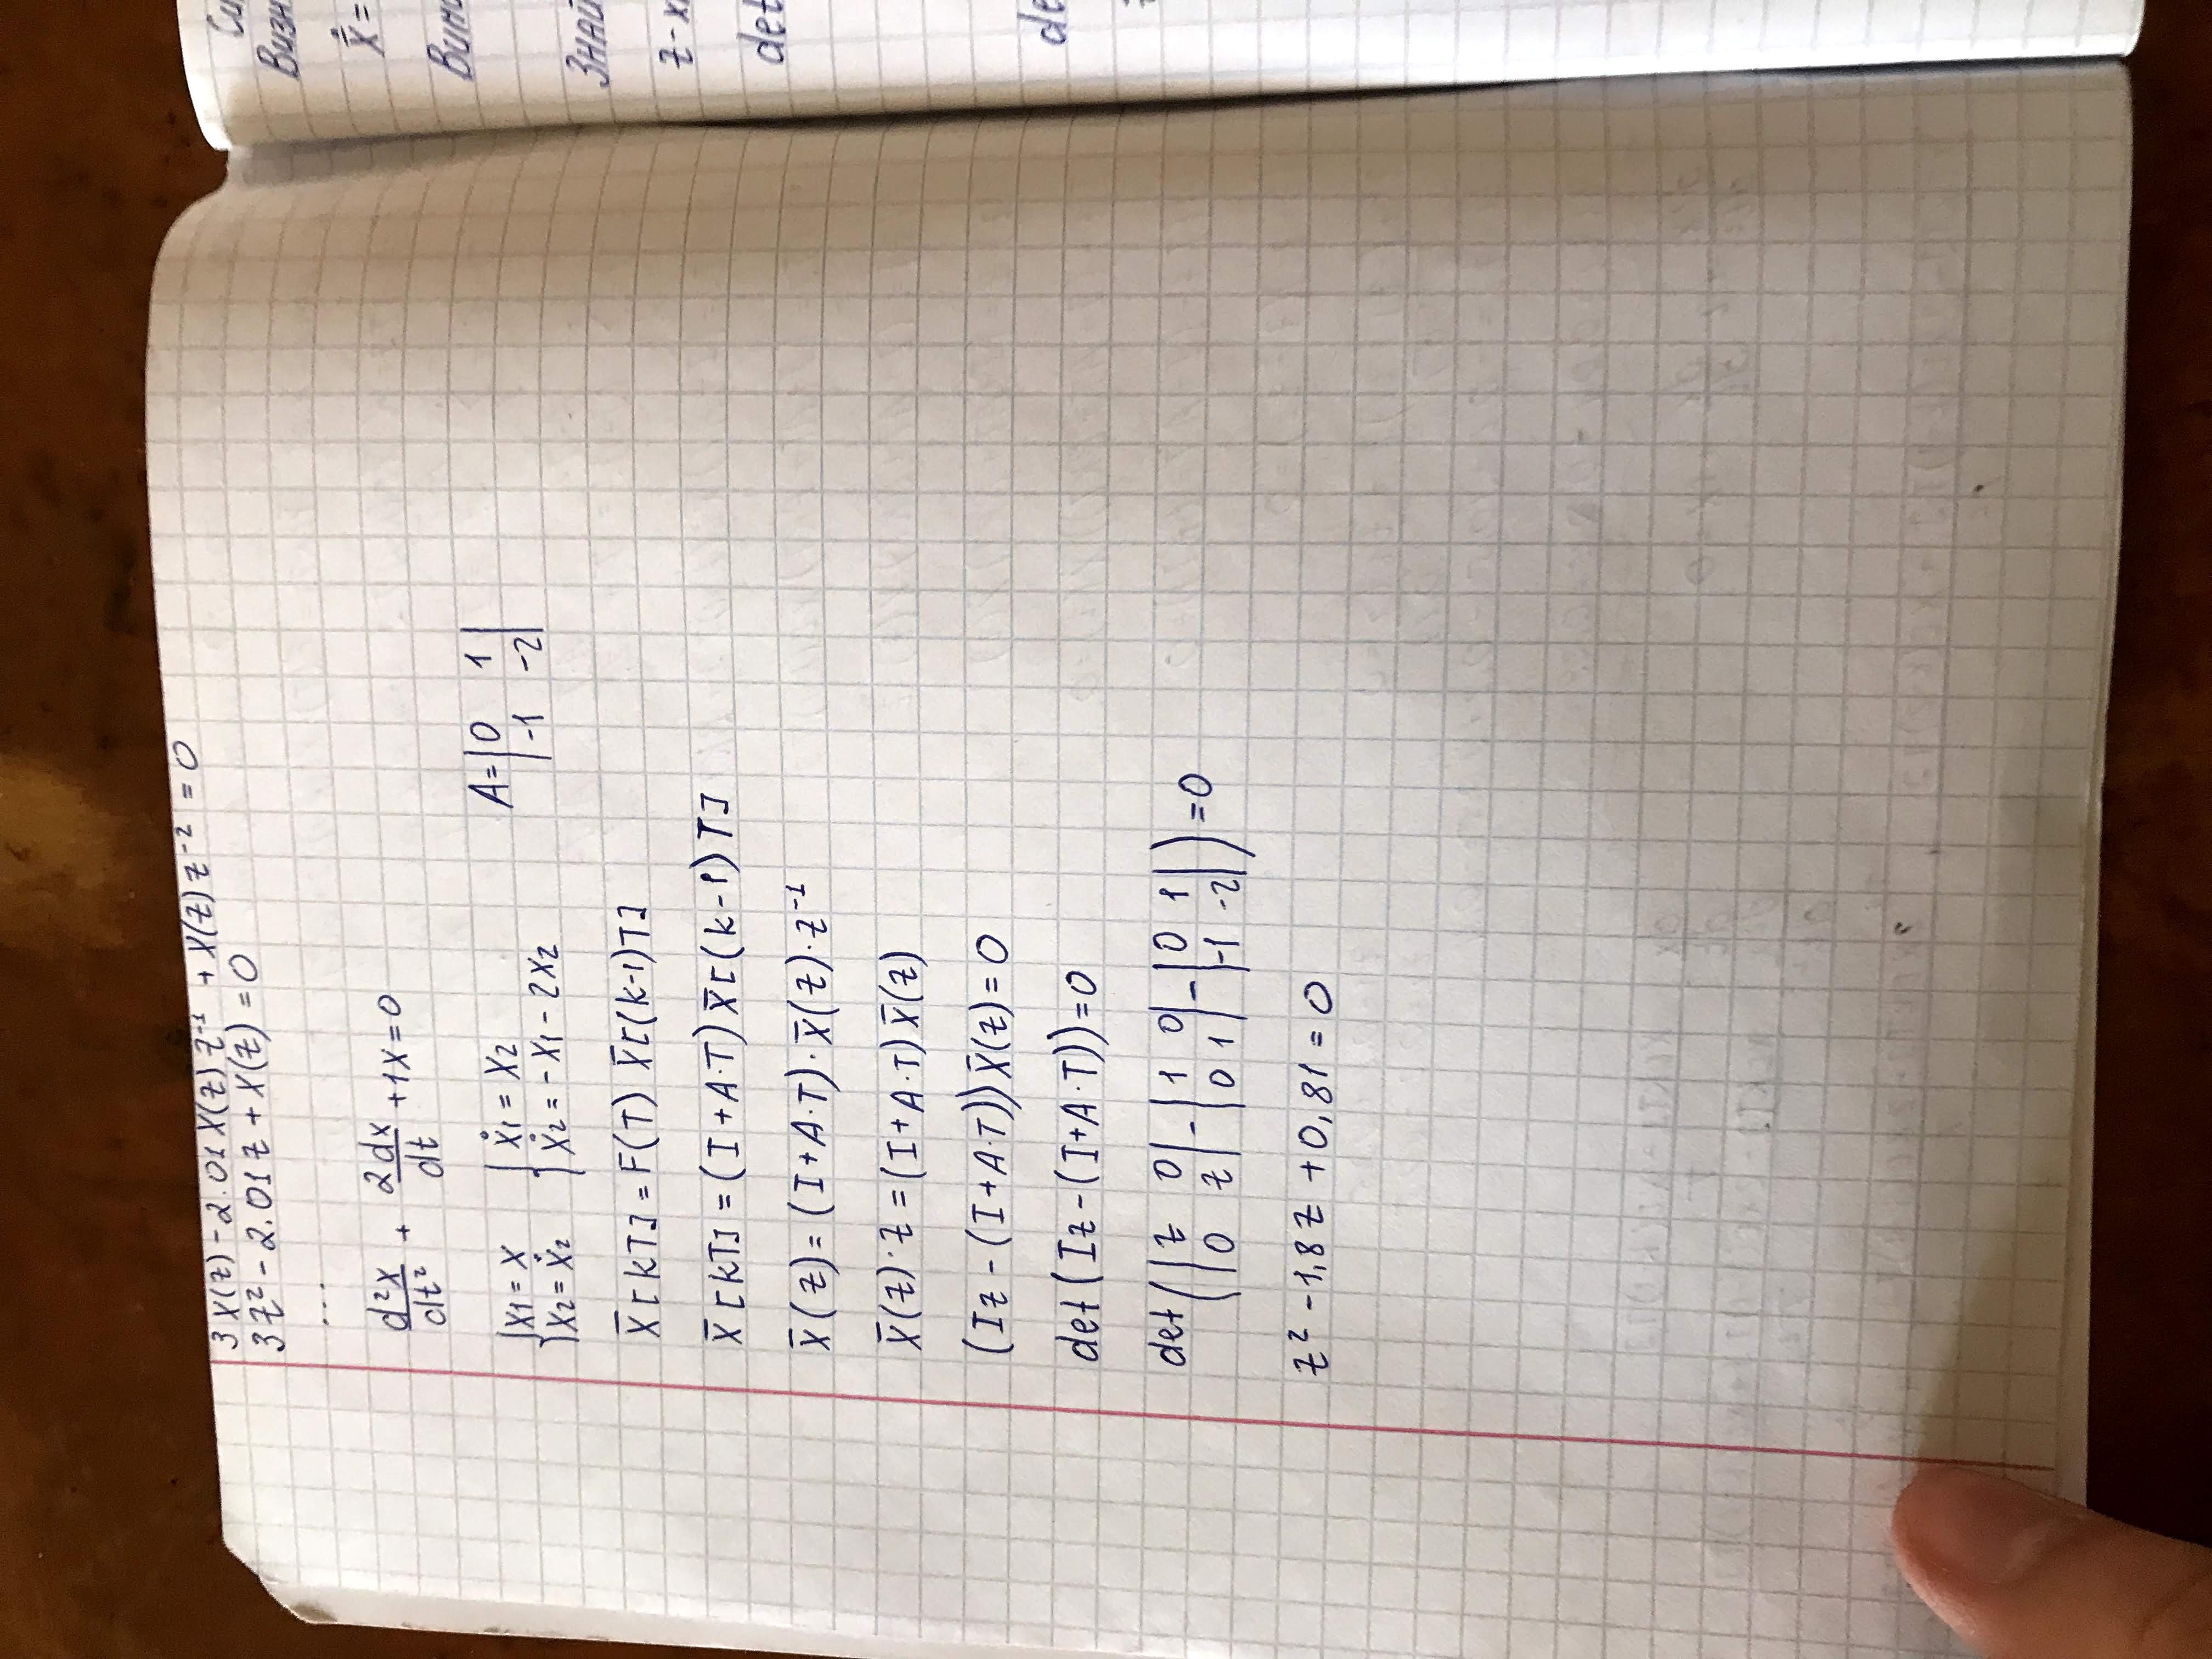 3X(z) - 2.01X(z)z⁻¹ + X(z)z⁻² = 0
3z² - 2.01z + X(z) = 0
...
d²x/dt² + 2dx/dt + 1x = 0
{x1 = x  { ẋ1 = x2  A = |0 1|
{x2 = ẋ2  { ẋ2 = -x1 - 2x2  |-1 -2|
x̄[kT] = F(T) x̄[(k-1)T]
x̄[kT] = (I + A·T) x̄[(k-1)T]
x̄(z) = (I + A·T)·x̄(z)·z⁻¹
x̄(z)·z = (I + A·T) x̄(z)
(Iz - (I + A·T)) x̄(z) = 0
det(Iz - (I + A·T)) = 0
det(|z 0| - |1 0| - |0 1|) = 0
|0 z| |0 1| |-1 -2|
z² - 1,8z + 0,81 = 0
ẋ̄ =
z-х
det